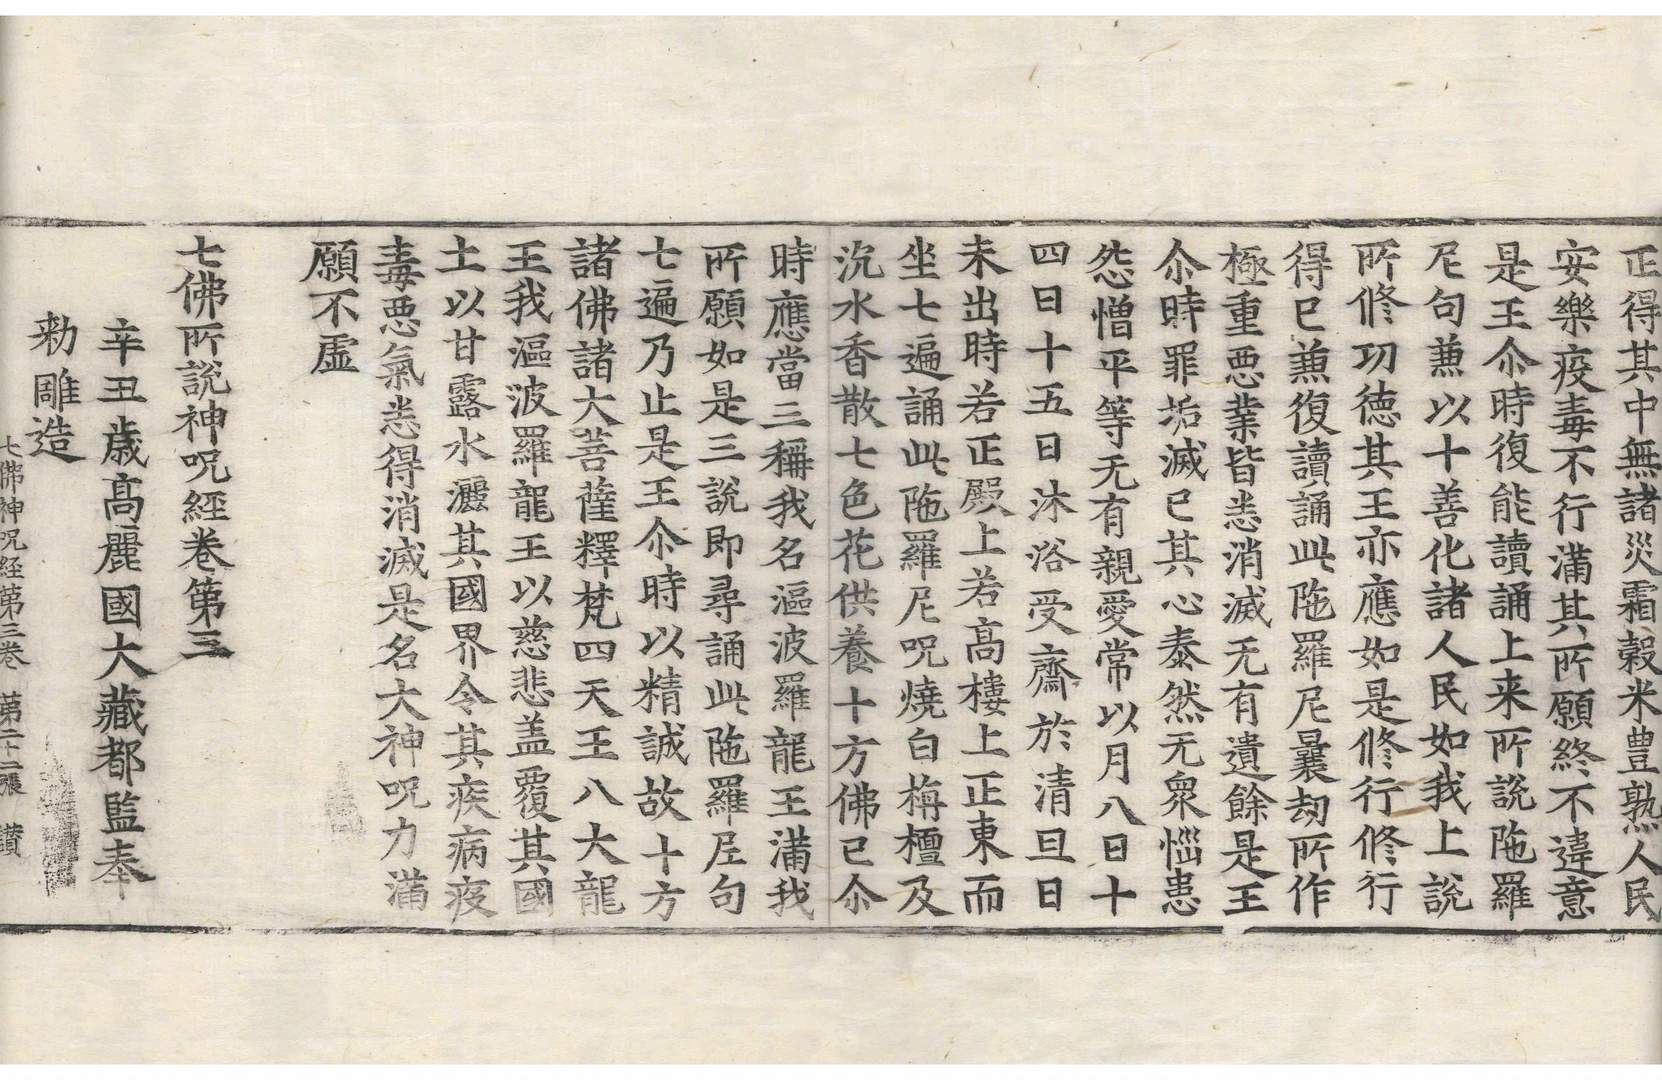 正得其中無諸災霜穀米豊熟人民
安樂疫毒不行滿其所願終不違意
是王尒時復能讀誦上来所說陁羅
尼句兼以十善化諸人民如我上說
所修功徳其王亦應如是修行修行
得已兼復讀誦此陁羅尼曩劫所作
極重惡業皆悉消滅无有遺餘是王
尒時罪垢滅已其心泰然无衆惱患
怨憎平等无有親愛常以月八日十
四日十五日沐浴受齋於清旦日
未出時若正殿上若髙樓上正東而
坐七遍誦此陁羅尼呪燒白栴檀及
沉水香散七色花供養十方佛已尒
時應當三稱我名漚波羅龍王滿我
所願如是三說即尋誦此陁羅尼句
七遍乃止是王尒時以精誠故十方
諸佛諸大菩薩釋梵四天王八大龍
王我漚波羅龍王以慈悲盖覆其國
土以甘露水灑其國界令其疾病疫
毒惡氣悉得消滅是名大神呪力滿
願不虛
七佛所說神呪經卷第三
辛丑歳髙麗國大藏都監奉
勑雕造
七佛神呪経第三卷 第二十二張 讃